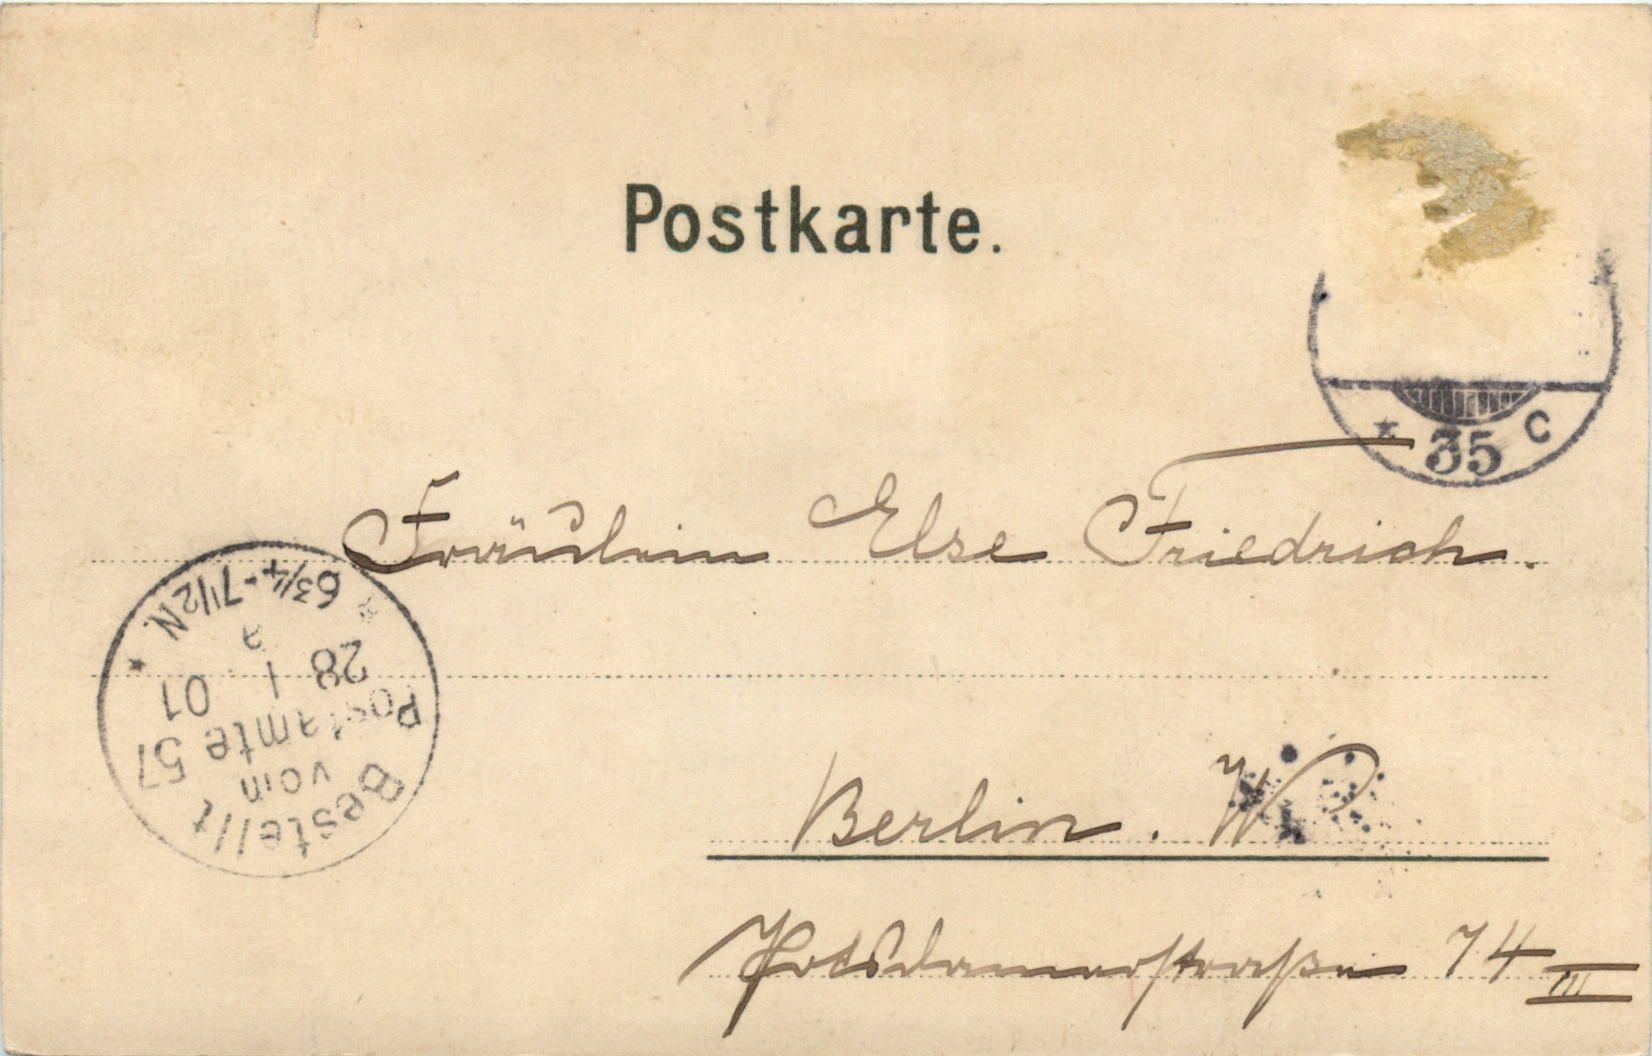 Postkarte.
* 35 c
Fräulein Else Friedrich.
Bestellt
vom
Postamte 57
28 1 01
a
* 6 3/4-7 1/2 N. *
Berlin. W
Potsdamerstraße 74 III